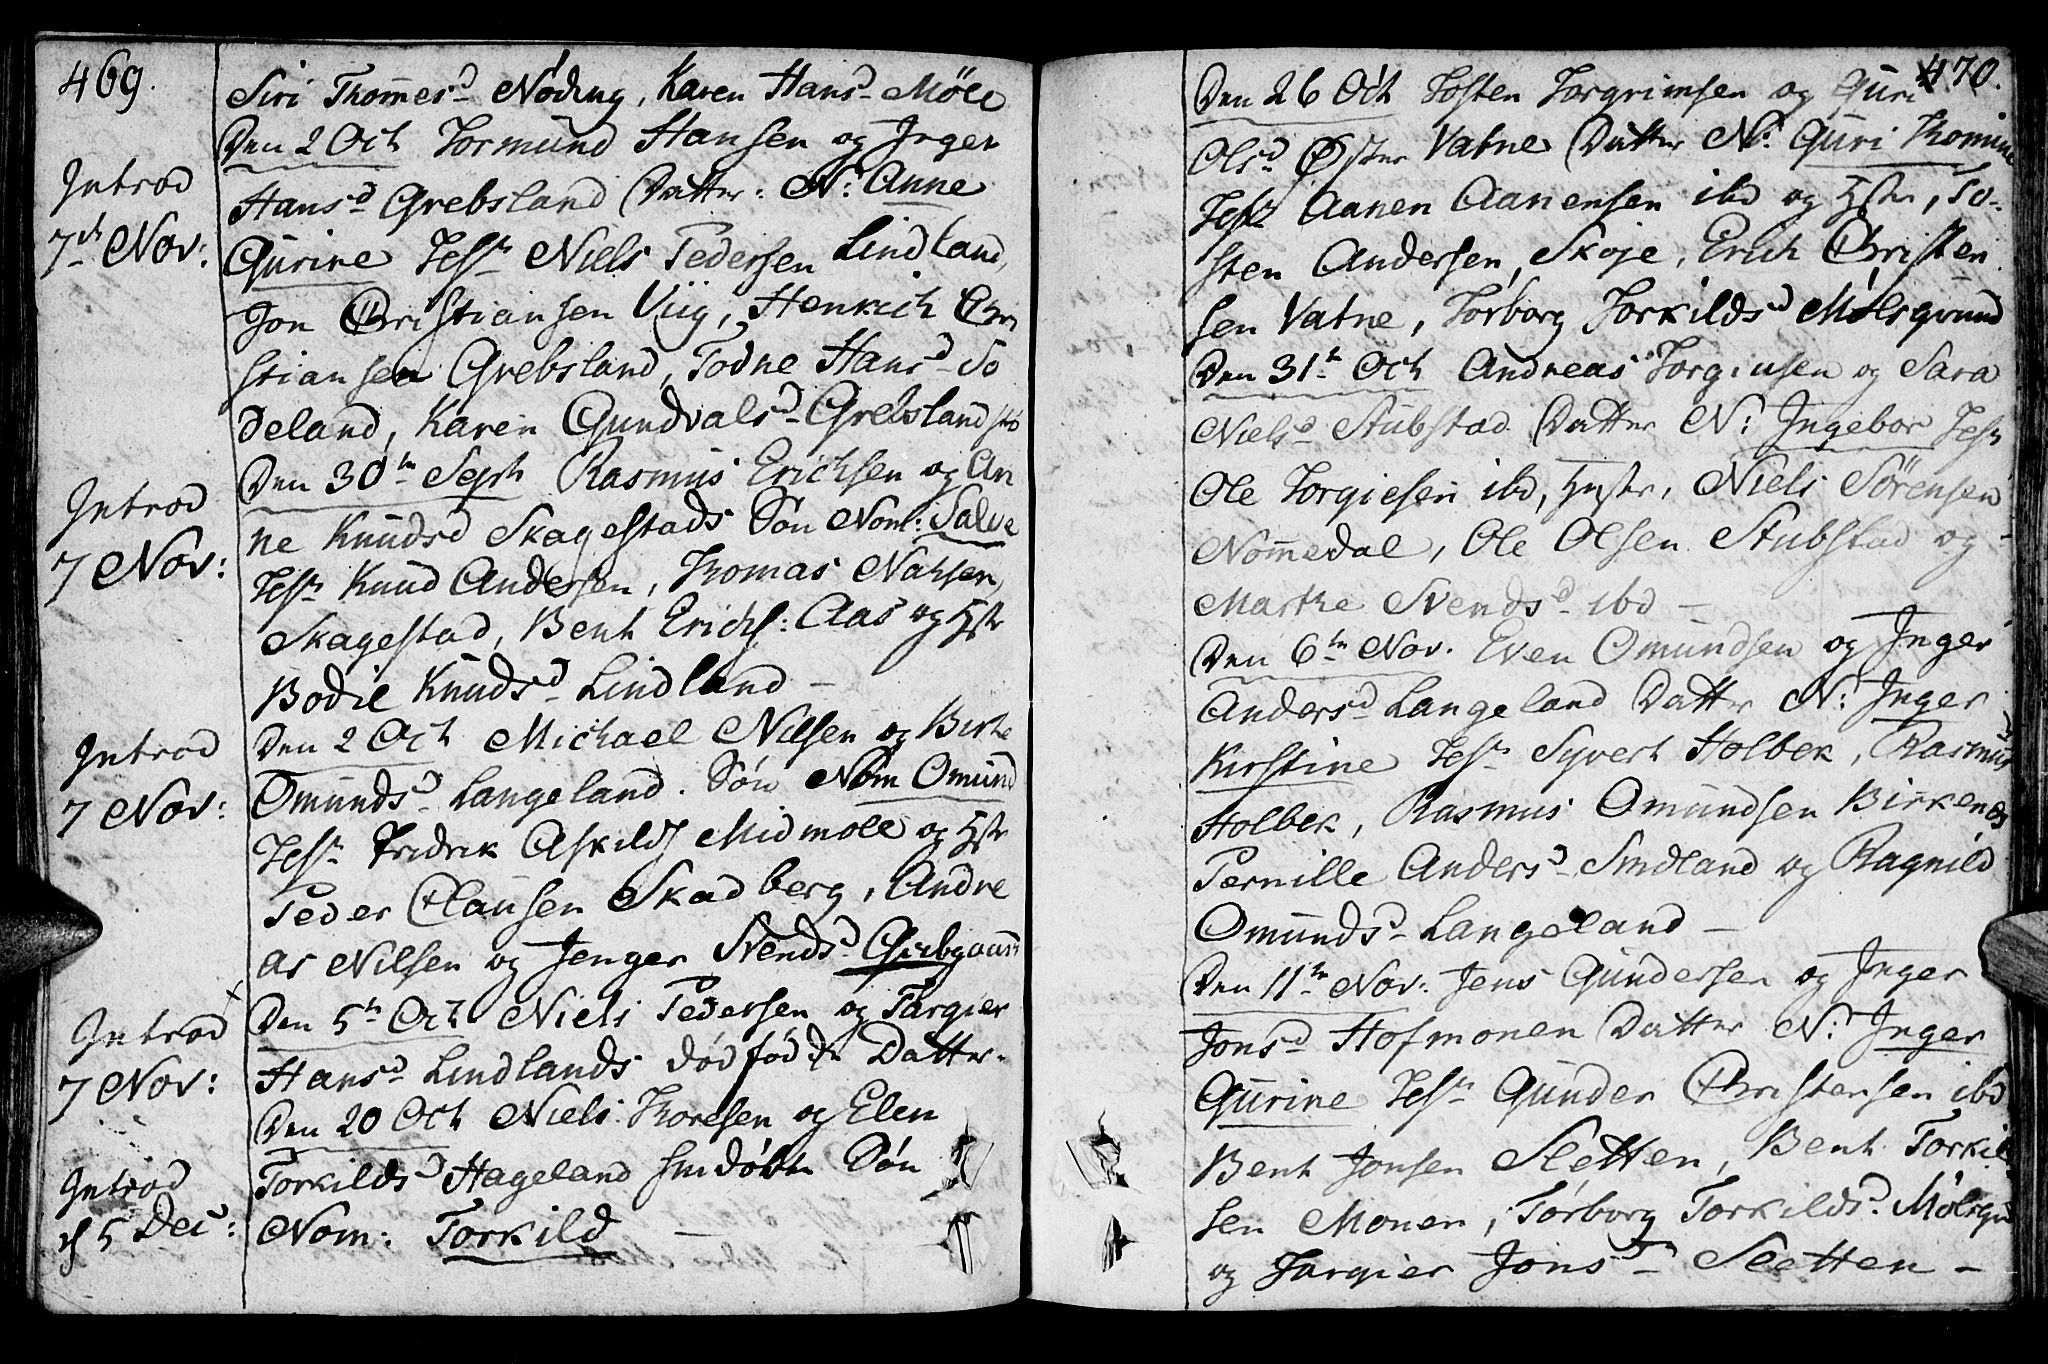 469.
Siri Thomesd Nøding, Karen Hansd Möll
Den 2 Oct Tormund Hansen og Inger
Introd
Hansd Grebsland Datter: N: Anne
7d Nov:
Gurine Test Niels Pedersen Lindland,
Jon Christiansen Viig, Henrich Chri
stiansen Grebsland, Todne Hansd So
deland, Karen Gundvalsd Grebsland
Den 30te Sept Rasmus Erichsen og An
Introd
ne Knudsd Skagestads Søn Nom: Salve
7 Nov:
Test Knud Andersen, Thomas
Skagestad, Bent Erichs: Aas og Hstr
Bodil Knudsd Lindland –
Den 2 Oct Michael Nilsen og Birte
Introd
Omundsd Langeland. Søn Nom Omund
7 Nov:
Test Fredrik Askilds Midmoll og Hstr
Peder Clausen Skadberg, Andre
as Nilsen og Jenger Svendsd
Den 5te Oct Niels Pedersen og Targier
Introd
Hansd Lindlands dødføde Datter.
7 Nov:
Den 20 Oct Niels Thoresen og Elen
Torkildsd Hageland hiemdøbte Søn
Introd
Nom: Torkild –
d 5 Dec:
470.
Den 26 Oct Tosten Torgrimsen og Guri
Olsd Øster Vatne Datter N: Guri Thomine
Test Aanen Aanensen ibd og Hstr, To-
sten Andersen, Skøje, Erich Christen
sen Vatne, Torborg Torkildsd Mølsgrund
Den 31te Oct Andreas Torgiusen og Sara
Nielsd Stubstad Datter N: Ingebor Test
Ole Torgiesen ibd, Hustr, Niels Sörensen
Nommedal, Ole Olsen Stubstad og
Marthe Svendsd ibd –
Den 6te Nov. Even Omundsen og Inger
Andersd Langeland Datter N: Inger
Kirstine Test Syvert Holbek, Rasmus
Holbek, Rasmus Omundsen Birkenes
Pernille Andersd Smdland og Ragnild
Omundsd Langeland –
Den 11te Nov: Jens Gundersen og Inger
Jonsd Hofmonen Datter N: Inger
Gurine Test Gunder Christensen ibd
Bent Jonsen Sletten, Bent Torkil
sen Monen, Torborg Torkildsd Mølsgru
og Targier Jonsd Sletten –